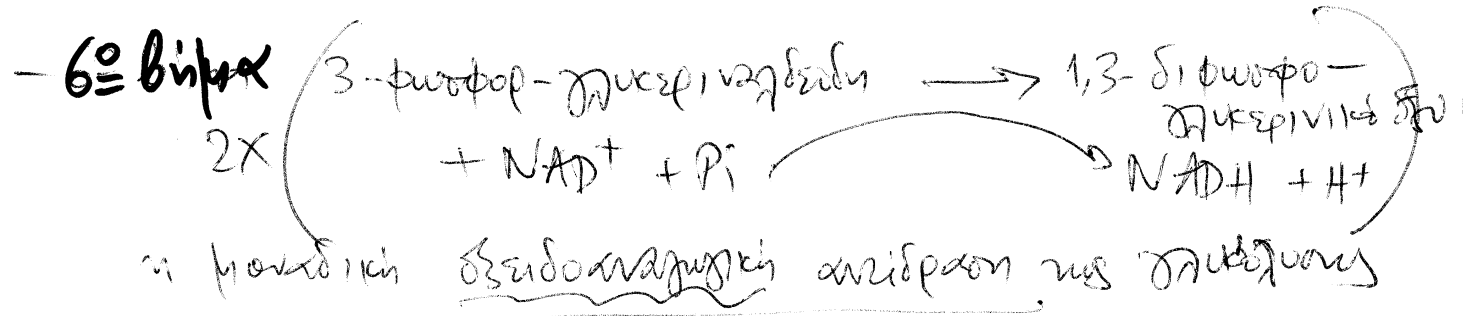 - 6º βήμα 3-φωσφορ-γλυκεριναλδεΰδη → 1,3-διφωσφο-
γλυκερινικό οξύ
2x + NAD+ + Pi NADH + H+
η μοναδική οξειδοαναγωγική αντίδραση της γλυκόλυσης